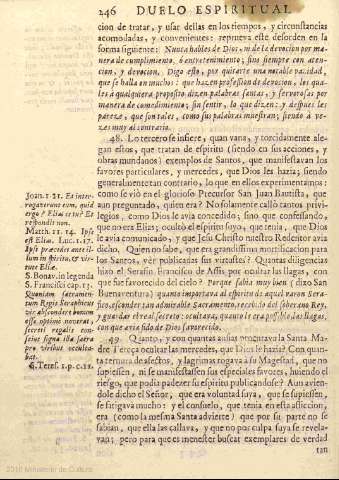 246 DUELO ESPIRITUAL
cion de tratar, y usar dellas en los tiempos, y circunstancias
acomodadas, y convenientes: reprueva este desorden en la
forma siguiente: Nunca hables de Dios, ni de la devocion por ma-
nera de cumplimiento, ò entretenimiento; sino siempre con aten-
cion, y devocion. Digo esto, por quitarte una notable vanidad,
que se halla en muchos: que hazen profession de devocion, los qua-
les à qualquiera proposito dizen palabras santas, y fervorosas por
manera de comedimiento; sin sentir, lo que dizen: y despues les
parece, que son tales, como sus palabras muestran; siendo à ve-
zes muy al contrario.
48. Lo tercero se infiere, quan vana, y torcidamente ale-
gan estos, que tratan de espiritu (siendo en sus acciones, y
obras mundanos) exemplos de Santos, que manifestavan los
favores particulares, y mercedes, que Dios les hazia; siendo
generalmente tan contrario, lo que en ellos experimentamos:
como se viò en el glorioso Precursor San Juan Bautista, que
aun preguntado, quien era? No solamente callò tantos privi-
legios, como Dios le avia concedido; sino que confessando,
que no era Elias; ocultò el espiritu suyo, que tenia, que Dios
le avia comunicado, y que Jesu Christo nuestro Redentor avia
dicho. Quien no sabe, que era grandissima mortificacion para
los Santos, vèr publicadas sus virtudes? Quantas diligencias
hizo el Serafin Francisco de Assis por ocultar las llagas, con
que fue favorecido del cielo? Porque sabia muy bien (dizo San
Buenaventura) quanto importava al espiritu de aquel varon Serafi-
co, esconder tan admirable Sacramento, recebido del soberano Rey,
y guardar el real secreto: ocultava, quanto le era possible las llagas,
con que avia sido de Dios favorecido.
49. Quanto, y con quantas ansias procurava la Santa Ma-
dre Teresa ocultar las mercedes, que Dios le hazia? Con quan-
ta ternura de afectos, y lagrimas rogava à su Magestad, que no
supiessen, ni se manifestassen sus especiales favores, huiendo el
riesgo, que podia padezer su espiritu publicandose? Aun avien-
dole dicho el Señor, que era voluntad suya, que se supiessen,
se fatigava mucho: y el consuelo, que tenia en esta afliccion,
era (como la mesma Santa advierte) que por su parte no se
sabian, que ella las callava, y que no por culpa suya se revela-
van; pero para que es menester buscar exemplares de verdad
tan
Joan. 1. 21. Et inter-
rogaverunt eum, quid
ergo? Elias es tu? Et
respondit non.
Matth. 11. 14. Ipse
est Elias. Luc. 1. 17.
Ipse præcedet ante il-
lum in spiritu, & vir-
tute Eliæ.
S. Bonav. in legenda
S. Francisci cap. 13.
Quoniam Sacramen-
tum Regis Seraphicus
vir abscondere bonum
esse optimè noverat;
secreti regalis con-
scius signa illa sacra
pro viribus occulta-
bat.
S. Teres. 1. p. c. 31.
2010 Ministerio de Cultura